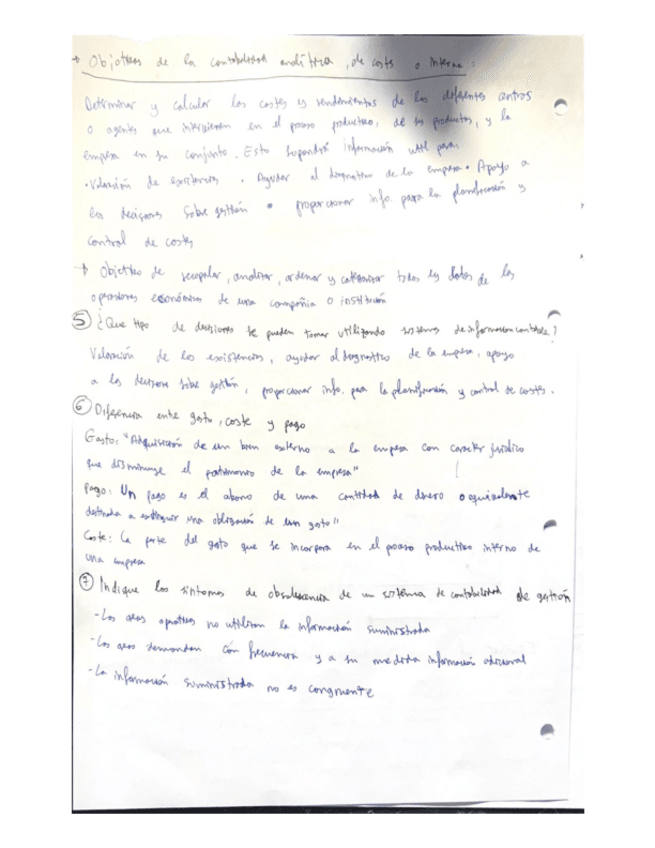 → Objetivos de la contabilidad analítica, de costes o interna:
Determinar y calcular los costes y rendimientos de los diferentes centros
o agentes que intervienen en el proceso productivo, de los productos, y la
empresa en su conjunto. Esto supondrá información util para:
• Valoración de existencias • Ayudar al diagnostico de la empresa • Apoyo a
las decisiones sobre gestión • proporcionar info. para la planificación y
control de costes
→ Objetivo de recopilar, analizar, ordenar y categorizar todos los datos de las
operaciones económicas de una compañia o institución
⑤ ¿Que tipo de decisiones se pueden tomar utilizando sistemas de informacion contable?
Valoración de las existencias, ayudar al diagnostico de la empresa, apoyo
a las decisiones sobre gestión, proporcionar info. para la planificación y control de costes.
⑥ Diferencia entre gasto, coste y pago
Gasto: "Adquisición de un bien externo a la empresa con caracter juridico
que disminuye el patrimonio de la empresa"
Pago: Un pago es el abono de una cantidad de dinero o equivalente
destinada a extinguir una obligación de un gasto"
Coste: La parte del gasto que se incorpora en el proceso productivo interno de
una empresa
⑦ Indique los sintomas de obsolescencia de un sistema de contabilidad de gestión
- Las areas operativas no utilizan la información suministrada
- Las areas demandan con frecuencia y a su medida información adicional
- La información suministrada no es congruente